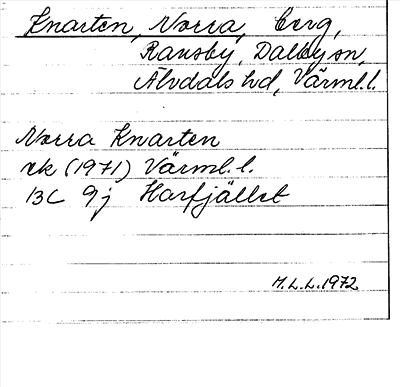 Knarten, Norra, berg,
Ransby, Dalby sn,
Älvdals hd, Värml.l.
Norra Knarten
ek (1971) Värml.l.
13C 9j Harfjället
H.L.L.1972